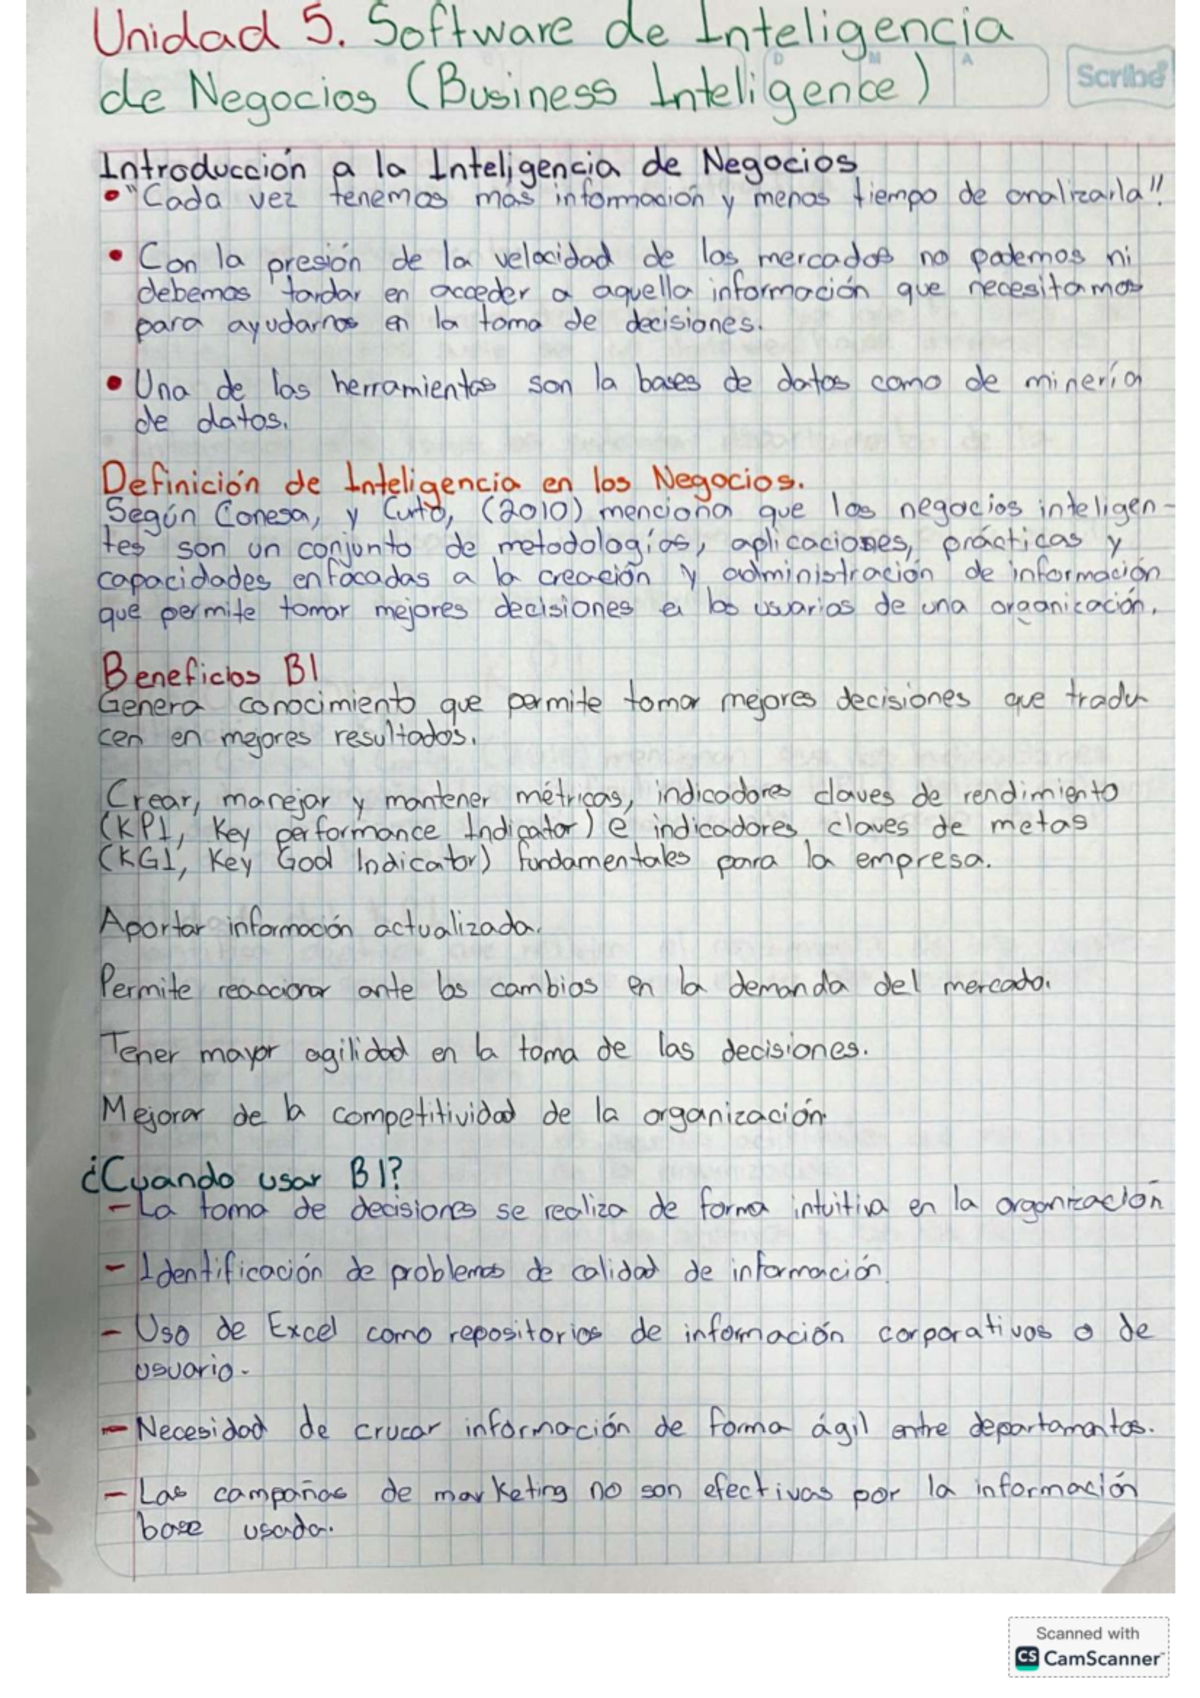 Unidad 5. Software de Inteligencia
de Negocios (Business Inteligence)
D M A
Scribe
Introducción a la Inteligencia de Negocios
• "Cada vez tenemos más información y menos tiempo de analizarla"!
• Con la presión de la velocidad de los mercados no podemos ni
debemos tardar en acceder a aquella información que necesitamos
para ayudarnos en la toma de decisiones.
• Una de las herramientas son la bases de datos como de minería
de datos.
Definición de Inteligencia en los Negocios.
Según Conesa, y Curto, (2010) menciona que los negocios inteligen-
tes son un conjunto de metodologías, aplicaciones, prácticas y
capacidades enfocadas a la creación y administración de información
que permite tomar mejores decisiones a los usuarios de una organicación.
Beneficios BI
Genera conocimiento que permite tomar mejores decisiones que tradu
cen en mejores resultados.
Crear, manejar y mantener métricas, indicadores claves de rendimiento
(KPI, Key performance Indicator) e indicadores claves de metas
(KGI, Key God Indicator) fundamentales para la empresa.
Aportar información actualizada.
Permite reaccionar ante los cambios en la demanda del mercado.
Tener mayor agilidad en la toma de las decisiones.
Mejorar de la competitividad de la organización.
¿Cuando usar BI?
- La toma de decisiones se realiza de forma intuitiva en la organización
- Identificación de problemas de calidad de información
- Uso de Excel como repositorios de información corporativos o de
usuario.
- Necesidad de crucar información de forma ágil entre departamentos.
- Las campañas de marketing no son efectivas por la información
base usada.
Scanned with
CS CamScanner